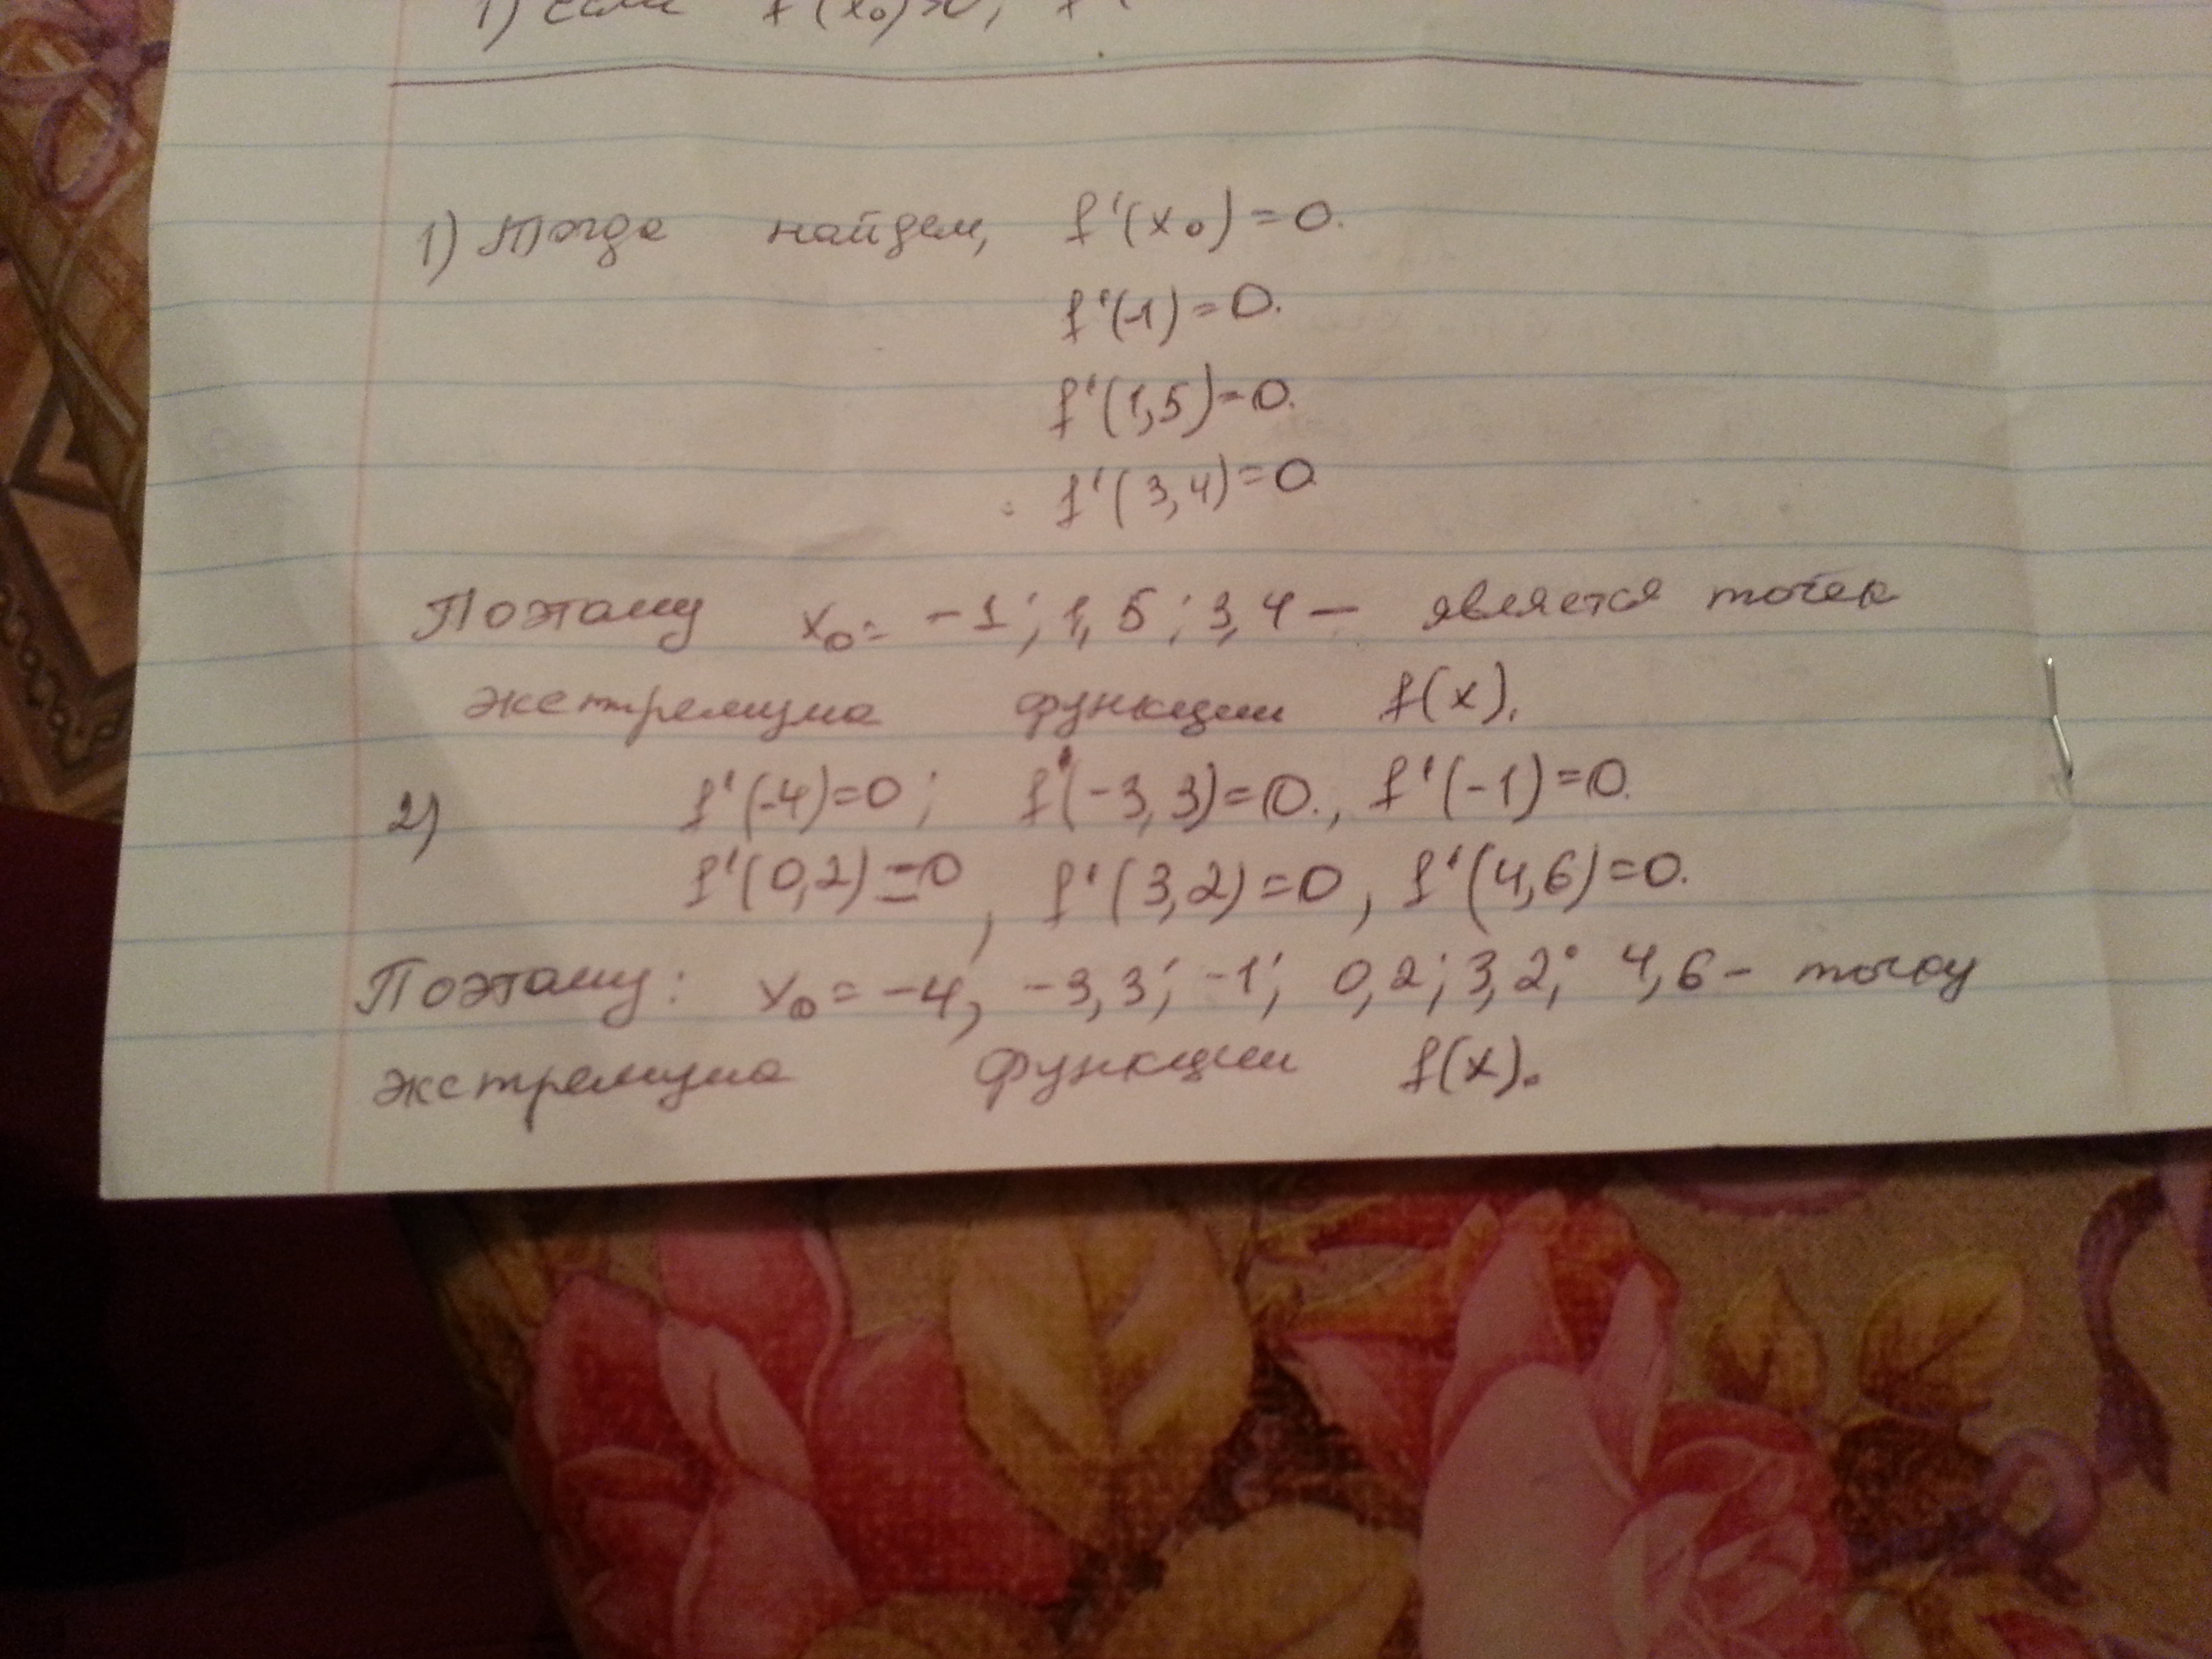 1) если f(x₀)>0, f
1) Тогда найдем, f'(x₀)=0.
f'(-1)=0.
f'(1,5)=0.
f'(3,4)=0
Поэтому x₀= -1; 1,5; 3,4 — является точек
экстремума функции f(x).
2) f'(-4)=0; f'(-3,3)=0., f'(-1)=0.
f'(0,2)=0, f'(3,2)=0, f'(4,6)=0.
Поэтому: x₀= -4, -3,3; -1; 0,2; 3,2; 4,6 - точку
экстремума функции f(x).